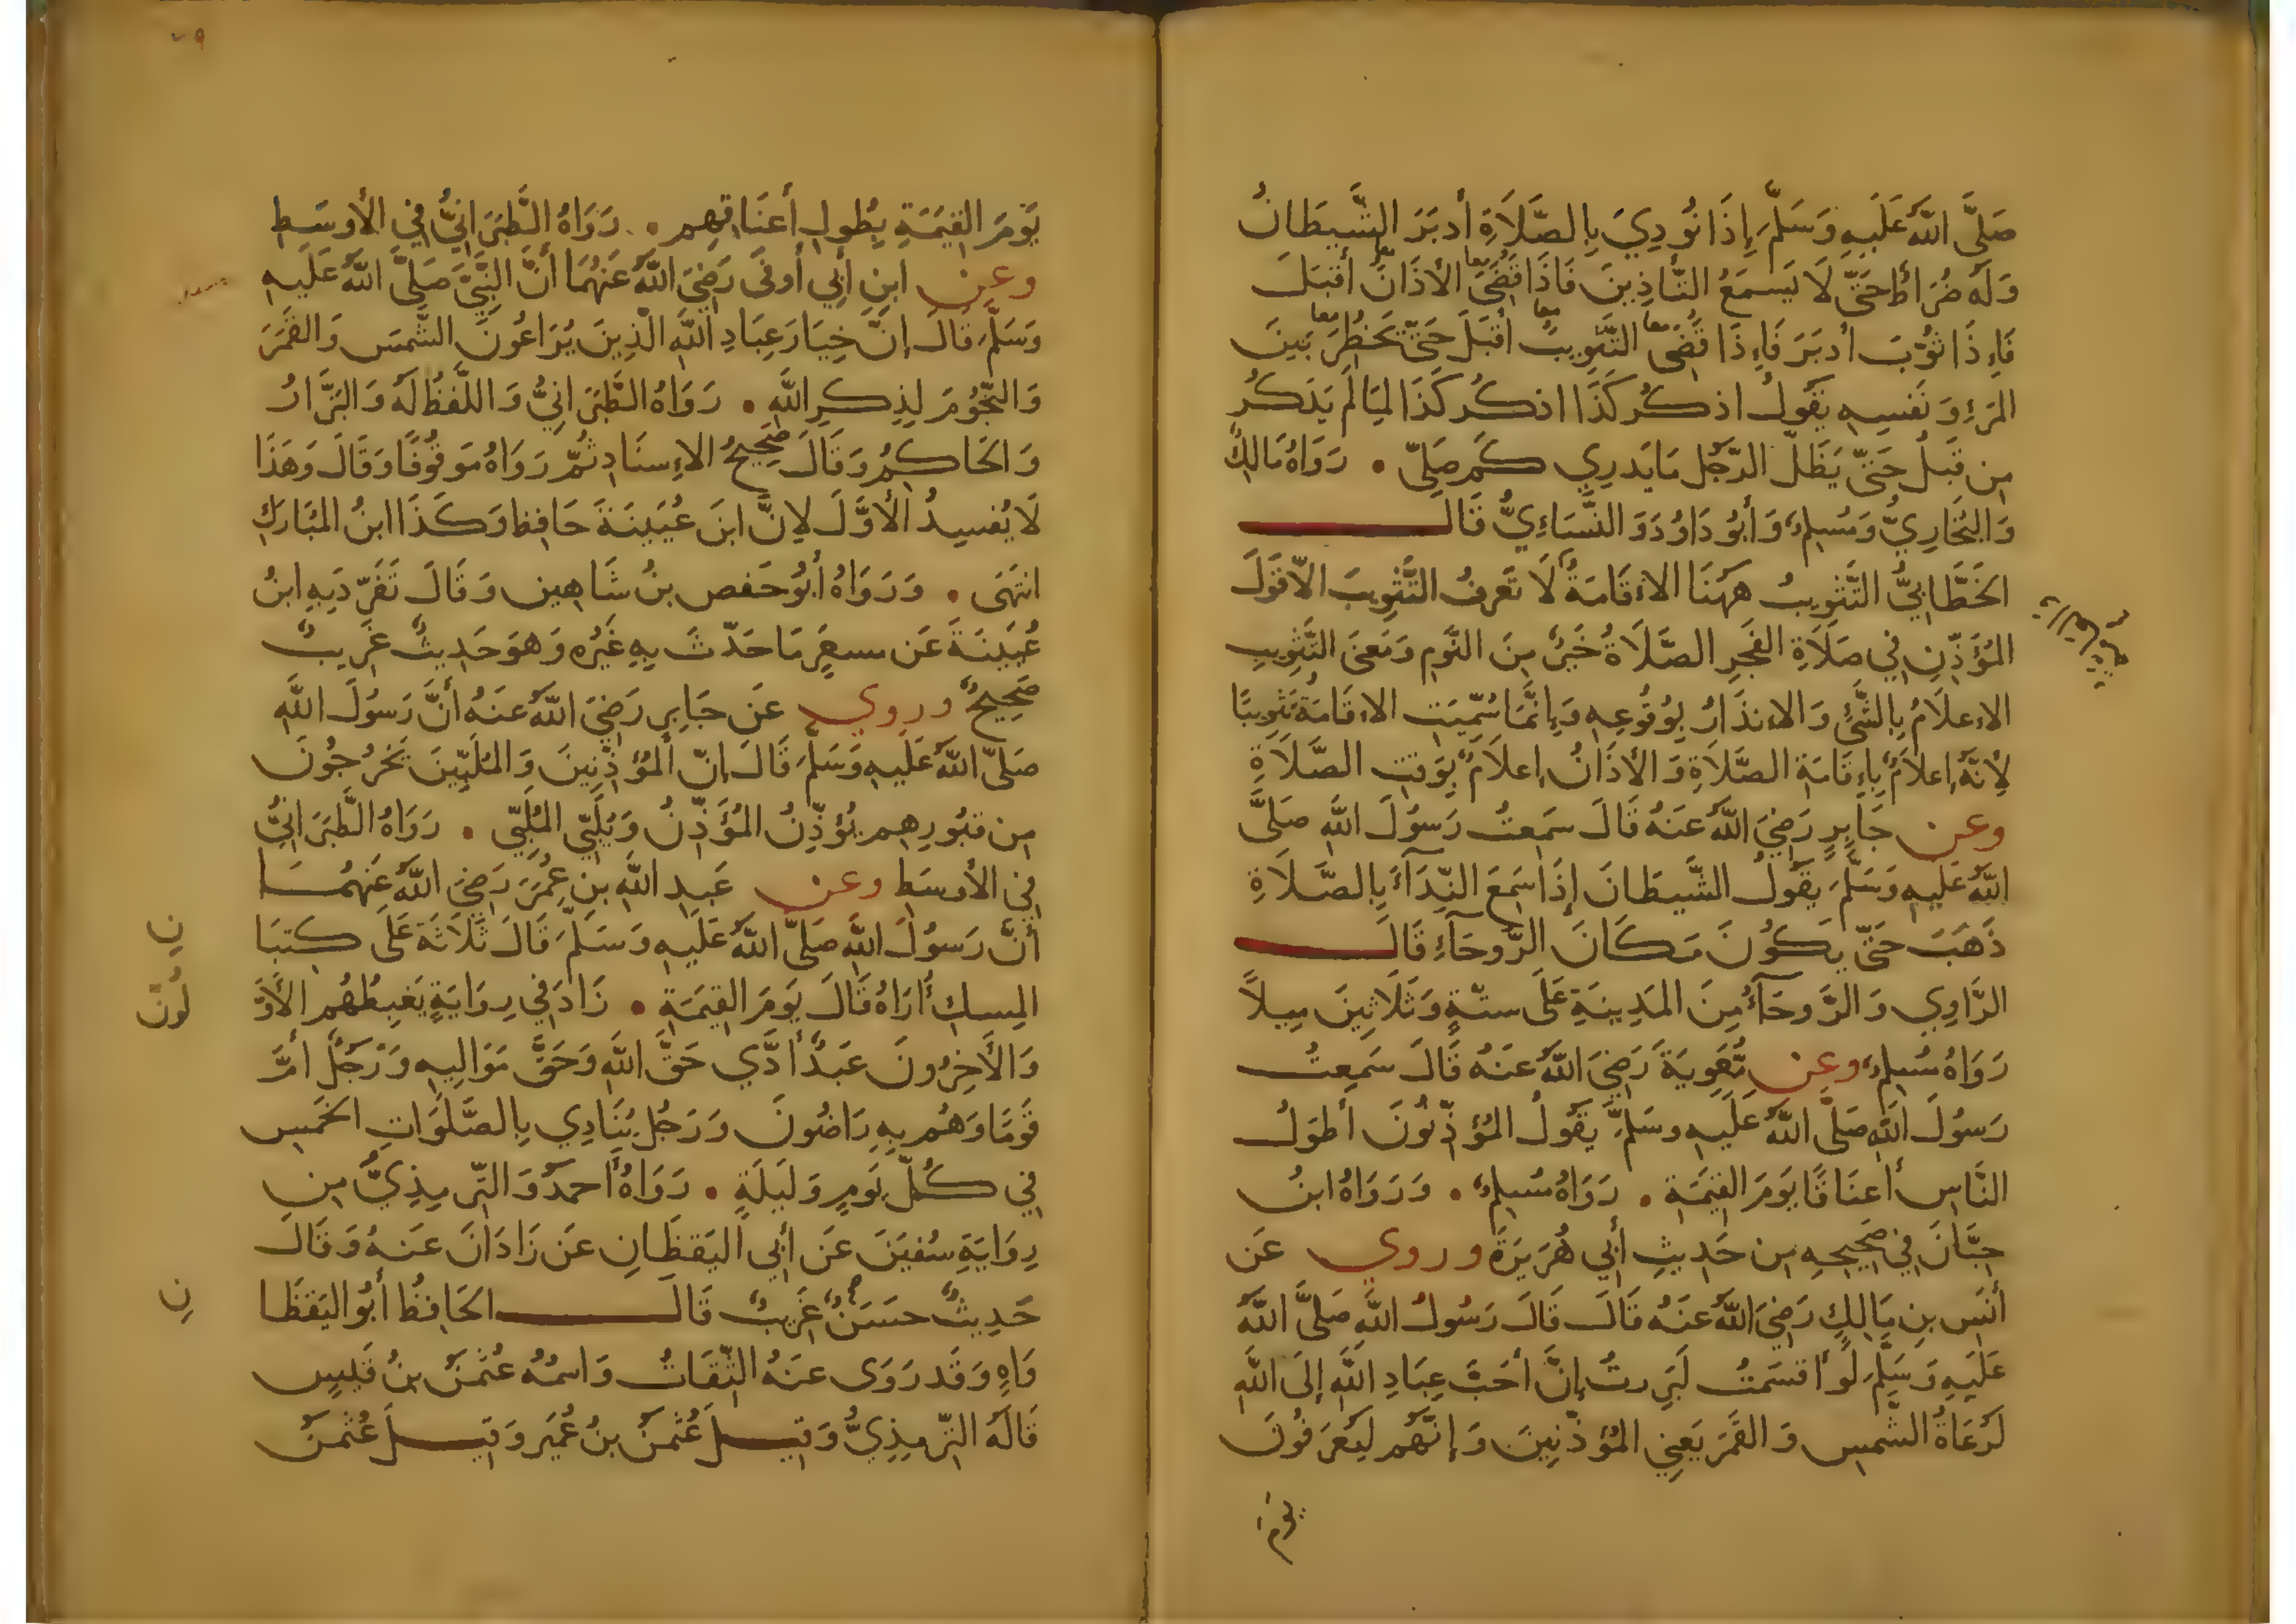 صَلَّى اللَّهُ عَلَيهِ وَسَلَّمَ إِذَا نُودِيَ بِالصَّلَاةِ أَدبَرَ الشَّيطَانُ
وَلَهُ ضُرَاطٌ حَتَّى لَا يَسمَعُ التَّأذِينَ فَاذَا قُضَى الأذَانَ أَقبَلَ
فَاءِذَا ثُوِّبَ ادبَرَ فَاءِذَا قُضَى التَّثوِيبُ اقبَلَ حَتَّى يَخطُرَ بَينَ
المَرءِ وَنَفسِهِ يَقُولُ اذكُر كَذَا اذكُر كَذَا لِمَا لَم يَذكُر
مِن قَبلُ حَتَّى يَظَلَّ الرَّجُل مَا يَدرِي كَم صَلَّى . رَوَاهُ مَالِكٌ
وَالبُخَارِيُّ وَمُسلِمٌ وَأَبُو دَاوُدَ وَ النَّسَاءِيُّ قَالَ
الخَطَّابِيُّ التَّثوِيبُ هَهُنَا الاءقَامَةُ لَا تَعرِفُ التَّثوِيبَ الاّ قَولَ
المُؤَذِّنِ فِي صَلَاةِ الفَجرِ الصَّلَاةُ خَيرٌ مِنَ النَّومِ وَمَعنَى التَّثوِيبِ
الاءعلَامُ بِالشَّئِ وَ الاءنذَارُ بِوُقُوعِهِ وَإِنَّمَا سُمِّيَت الاءقَامَةُ تَثوِيبًا
لأنَّهُ إعلَامٌ بِاءِقَامَةِ الصَّلَاةِ وَ الأذَانُ إعلَامٌ بِوَقتِ الصَّلَاةِ
وعن جَابِرٍ رَضِيَ اللَّهُ عَنهُ قَالَ سَمِعتُ رَسُولَ اللَّهِ صَلَّى
اللَّهُ عَلَيهِ وَسَلَّمَ يَقُولُ الشَّيطَانَ إِذَا سَمِعَ النِّدَآءَ بِالصَّلَاةِ
ذَهَبَ حَتَّى يَكُونَ مَكَانَ الرَّوحَآءِ قَالَ
الرَّاوِي وَ الرَّوحَآءُ مِنَ المَدِينَةِ عَلَى ستَّةٍ وَثَلَاثِينَ مِيلاً
رَوَاهُ مُسلِمٌ وعن مُعَوِيَةَ رَضِيَ اللَّهُ عَنهُ قَالَ سَمِعتُ
رَسُولَ اللَّهِ صَلَّى اللَّهُ عَلَيهِ وسَلَّمَ يَقُولُ المُؤَذِّنُونَ أطوَلُ
النَّاسِ أعنَاقًا يَومَ القِيَمَةِ . رَوَاهُ مُسلِمٌ . وَرَوَاهُ ابنُ
حِبَّانَ فِي صَحِيحِهِ مِن حَدِيثِ أبِي هُرَيرَةَ وروي عَن
أنَسِ بنِ مَالِكٍ رَضِيَ اللَّهُ عَنهُ قَالَ قَالَ رَسُولُ اللَّهِ صَلَّى اللَّهُ
عَلَيهِ وَسَلَّمَ لَو أقسَمتُ لَبَرِرتُ إنَّ أحَبَّ عِبَادِ اللَّهِ إلَى اللَّهِ
لَرُعَاةُ الشَّمسِ وَ القَمَرِ يَعنِي المُؤَذِّنِينَ وَ إنَّهُم لَيُعرَفُونَ
يوم
يَومَ القِيَمَةِ بِطُولِ أعنَاقِهِم . رَوَاهُ الطَّبَرَانِيُّ فِي الأوسَطِ
وعن ابنِ أبِي أوفَى رَضِيَ اللَّهُ عَنهُمَا أنَّ النَّبِيَّ صَلَّى اللَّهُ عَلَيهِ
وَسَلَّمَ قَالَ إنَّ خِيَارَ عِبَادِ اللَّهِ الَّذِينَ يُرَاعُونَ الشَّمسَ وَالقَمَرَ
وَالنُّجُومَ لِذِكرِ اللَّهِ . رَوَاهُ الطَّبَرَانِيُّ وَ اللَّفظُ لَهُ وَ البَزَّارُ
وَ الحَاكِمُ وَقَالَ صَحِيحُ الاءِسنَادِ ثُمَّ رَوَاهُ مَوقُوفًا وَقَالَ وَهَذَا
لَا يُفسِدُ الأوَّلَ لِانَّ ابنَ عُيَينَةَ حَافِظ وَكَذَا ابنُ المُبَارَكِ
انتَهَى . وَرَوَاهُ أبُو حَفصِ بنُ شَاهِين وَقَالَ تَفَرَّدَ بِهِ ابنُ
عُيَينَةَ عَن مِسعَرٍ مَا حَدَّثَ بِهِ غَيرُه وَهوَ حَدِيثٌ غَرِيبٌ
صَحِيحٌ وروي عَن جَابِرٍ رَضِيَ اللَّهُ عَنهُ أنَّ رَسُولَ اللَّهِ
صَلَّى اللَّهُ عَلَيهِ وَسَلَّمَ قَالَ إنَّ المُؤَذِّنِينَ وَ المُلَبِّينَ يَخرُجُونَ
مِن قبُورِهِم يُؤَذِّنُ المُؤَذِّنُ وَيُلَبِّي المُلَبِّي . رَوَاهُ الطَّبَرَانِيُّ
فِي الأوسَطِ وعن عَبدِ اللَّهِ بنِ عُمَرَ رَضِيَ اللَّهُ عَنهُمَا
أنَّ رَسُولَ اللَّهِ صَلَّى اللَّهُ عَلَيهِ وَسَلَّمَ قَالَ ثَلَاثَة عَلَى كتبَا
نِ
المِسكِ أُرَاهُ قَالَ يَومَ القِيَمَةِ . زَادَ فِي رِوَايَةٍ يَغبِطُهُم الأوَّ
لُونَ
وَالأخِرُونَ عَبدٌ أدَّي حَقَّ اللَّهِ وَحَقَّ مَوَالِيهِ وَرَجُلٌ أمَّ
قَومًا وَهُم بِهِ رَاضُونَ وَرَجُل يُنَادِي بِالصَّلَوَاتِ الخَمسِ
فِي كُلِّ يَومٍ وَلَيلَةٍ . رَوَاهُ أحمدُ وَ التِّرمِذِيُّ مِن
رِوَايَةِ سُفيَنَ عَن أبِي اليَقظَانِ عَن زَاذَانَ عَنهُ وَقَالَ
حَدِيثٌ حسَنٌ غَرِيبٌ قَالَ الحَافِظُ أبُو اليَقظَا
نِ
وَاهٍ وَقَد رَوَى عَنهُ الثِّقَاتُ وَاسمُهُ عُثمَنُ بنُ قَيسٍ
قَالَهُ التِّرمِذِيُّ وَقِيلَ عُثمَنُ بنُ عُمَيرٍ وَقِيلَ عُثمَنُ